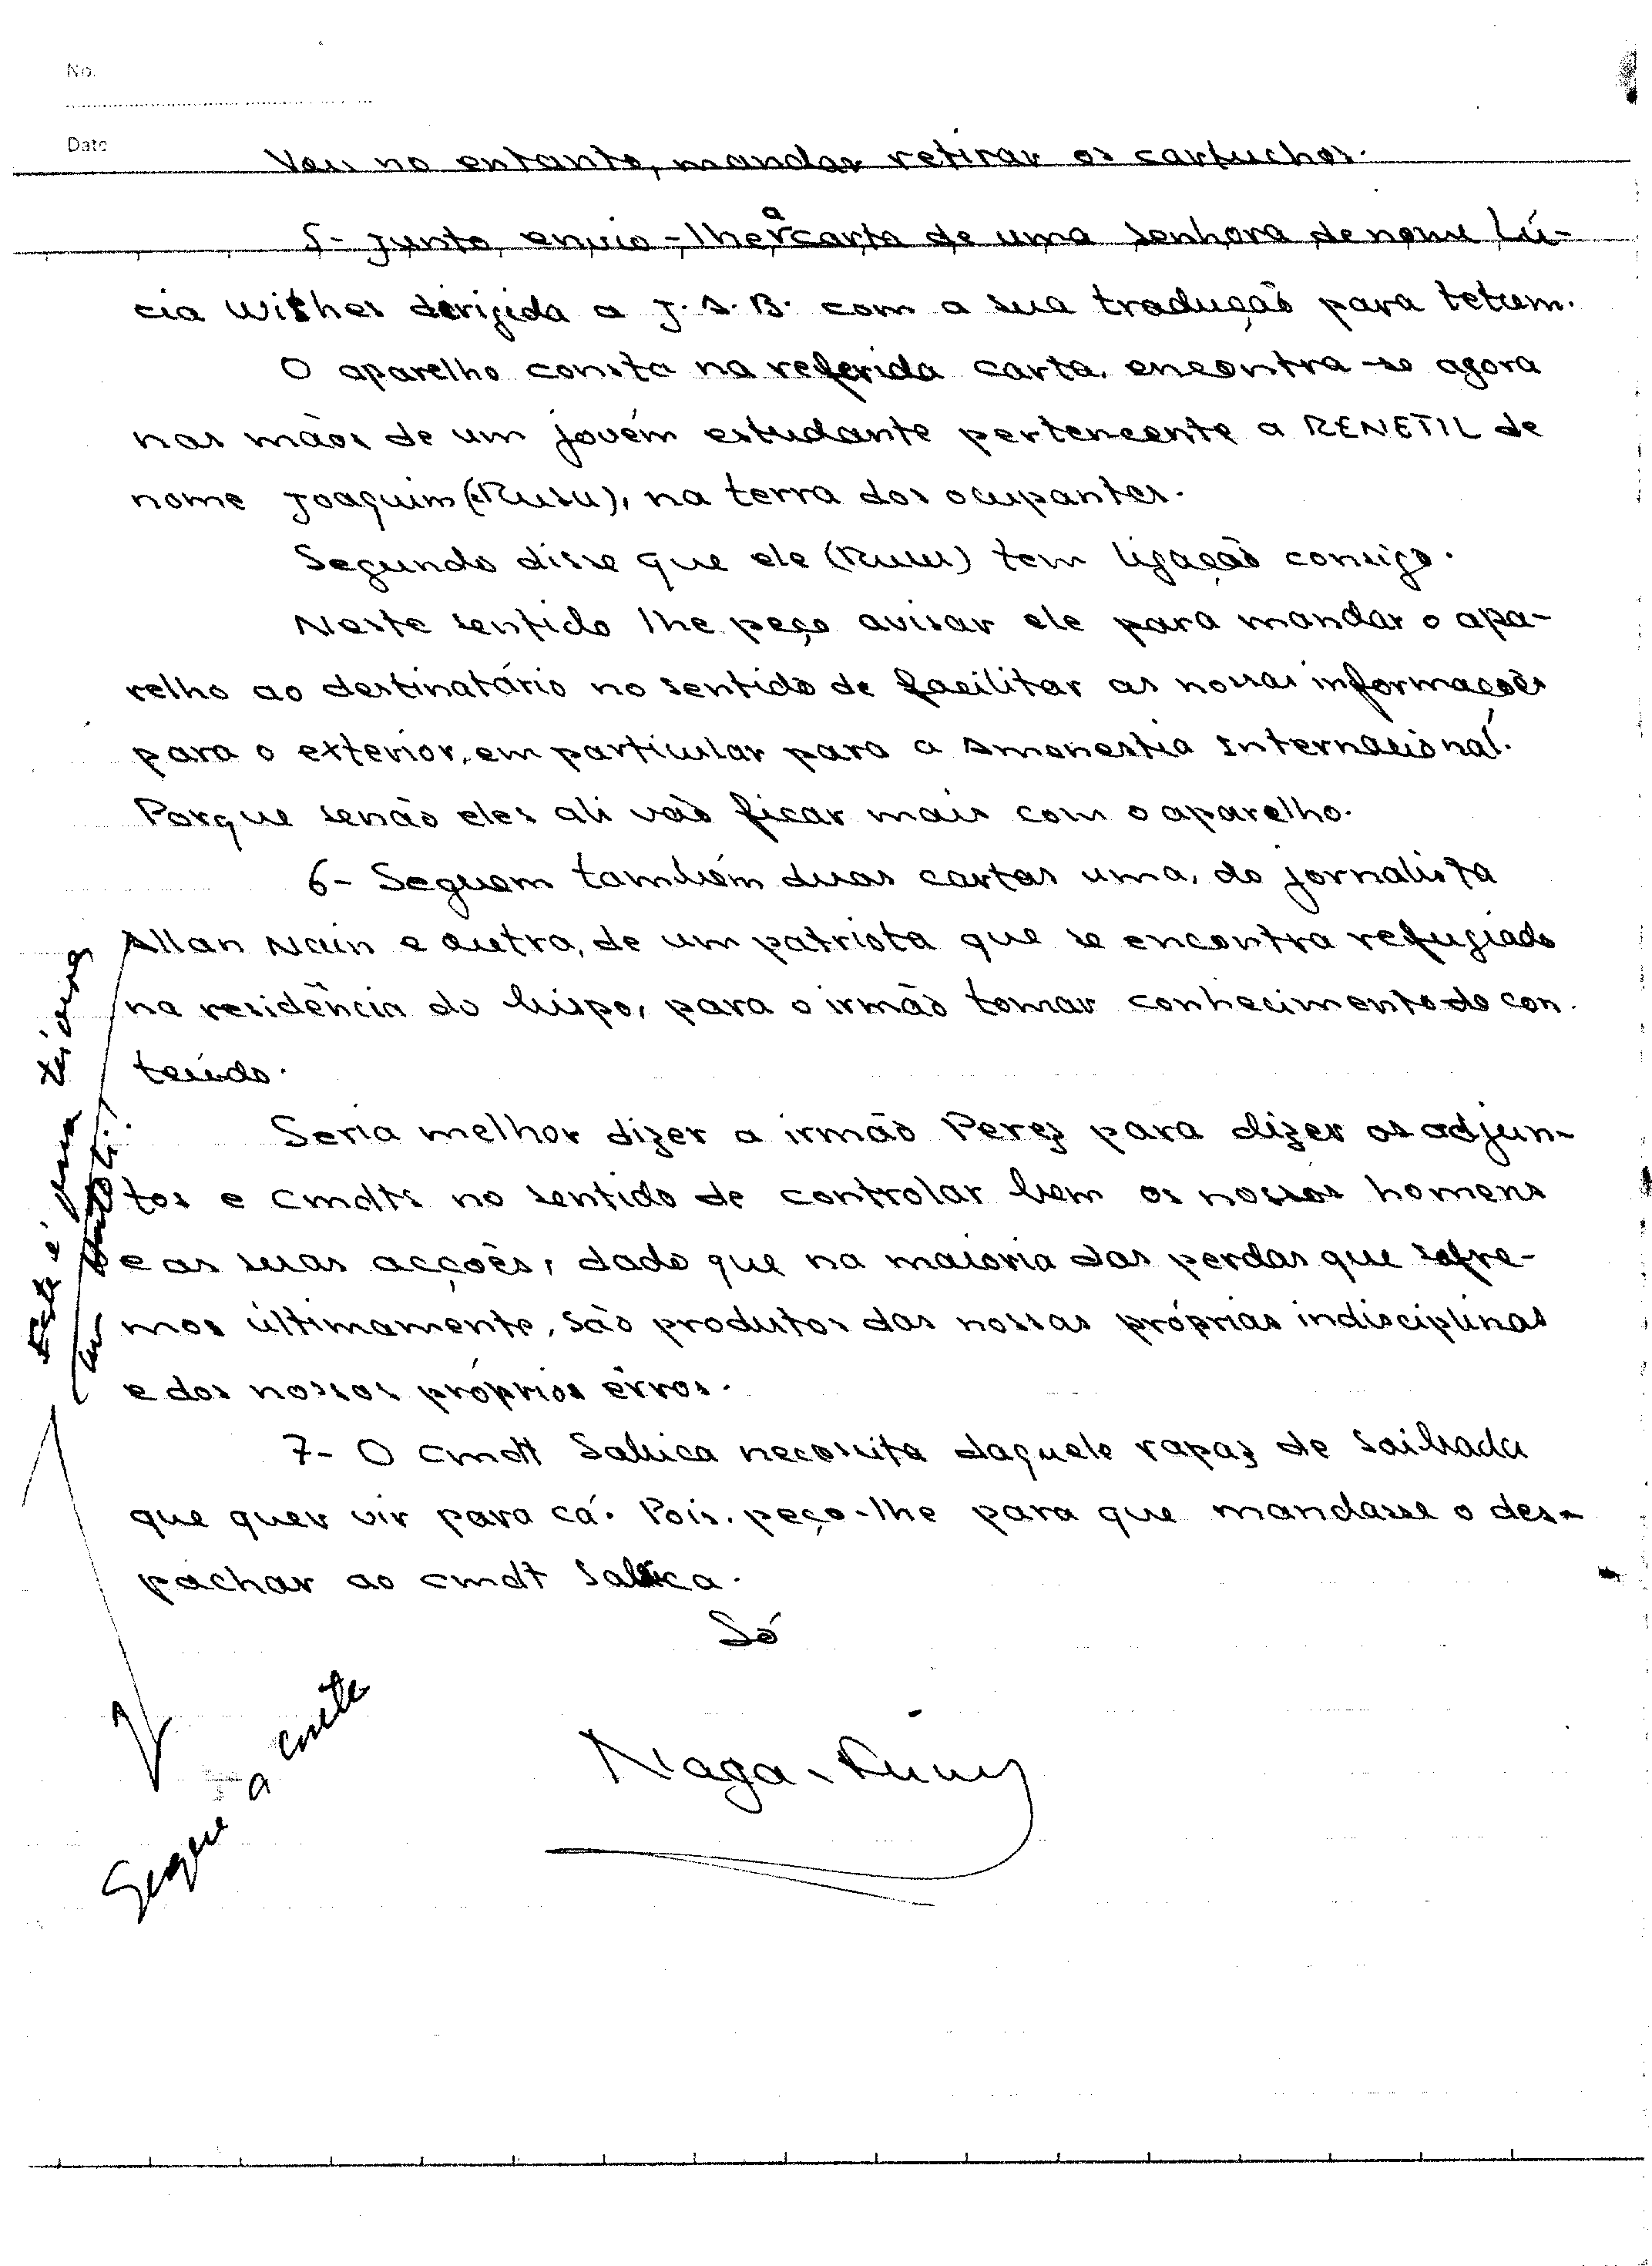 No.
Date
Vou no entanto, mandar retirar os cartuchos.
5- Junto envio-lhe a carta de uma senhora de nome Lú-
cia Withes dirigida a J.S.B. com a sua tradução para tetum.
O aparelho consta na referida carta, encontra-se agora
nas mãos de um jovém estudante pertencente a RENETIL de
nome Joaquim (Rusu), na terra dos ocupantes.
Segundo disse que ele (Rusu) tem ligação consigo.
Neste sentido lhe peço avisar ele para mandar o apa-
relho ao destinatário no sentido de facilitar as nossas informações
para o exterior, em particular para a Amonestia Internacional.
Porque senão eles ali vão ficar mais com o aparelho.
6- Seguem também duas cartas uma, do jornalista
Allan Nain e outra, de um patriota que se encontra refugiado
na residência do bispo, para o irmão tomar conhecimento do con-
teúdo.
Seria melhor dizer a irmão Perez para dizer os adjun-
tos e cmdts no sentido de controlar bem os nossos homens
e as suas acções, dado que na maioria das perdas que sofre-
mos últimamente, são produtos das nossas próprias indisciplinas
e dos nossos próprios êrros.
7- O cmdt Sabica necessita daquele rapaz de Saibada
que quer vir para cá. Pois, peço-lhe para que mandasse o des-
pachar ao cmdt Sabica.
Só
Este é uma
Segue a